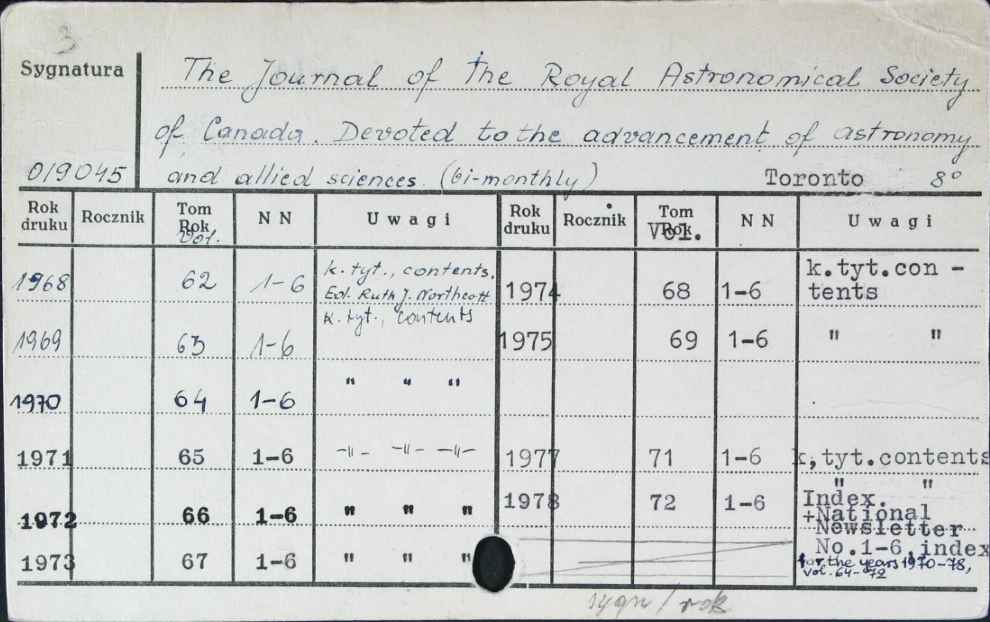 3
Sygnatura The Journal of the Royal Astronomical Society
of Canada. Devoted to the advancement of astronomy
019045 and allied sciences. (bi-monthly) Toronto 8°
Rok druku Rocznik Tom Rok Vol. N N Uwagi Rok druku Rocznik Tom Rok Vol. N N Uwagi
1968 62 1-6 k. tyt., contents. Ed. Ruth J. Northcott 1974 68 1-6 k.tyt.con-tents
1969 63 1-6 k. tyt., contents 1975 69 1-6 " "
1970 64 1-6 " " "
1971 65 1-6 -"- -"- -"- 1977 71 1-6 k,tyt.contents
1972 66 1-6 " " " 1978 72 1-6 " "
Index.
+National
Newsletter
1973 67 1-6 " " " No.1-6,index
for the years 1970-78,
vol. 64-72
sygn / rok